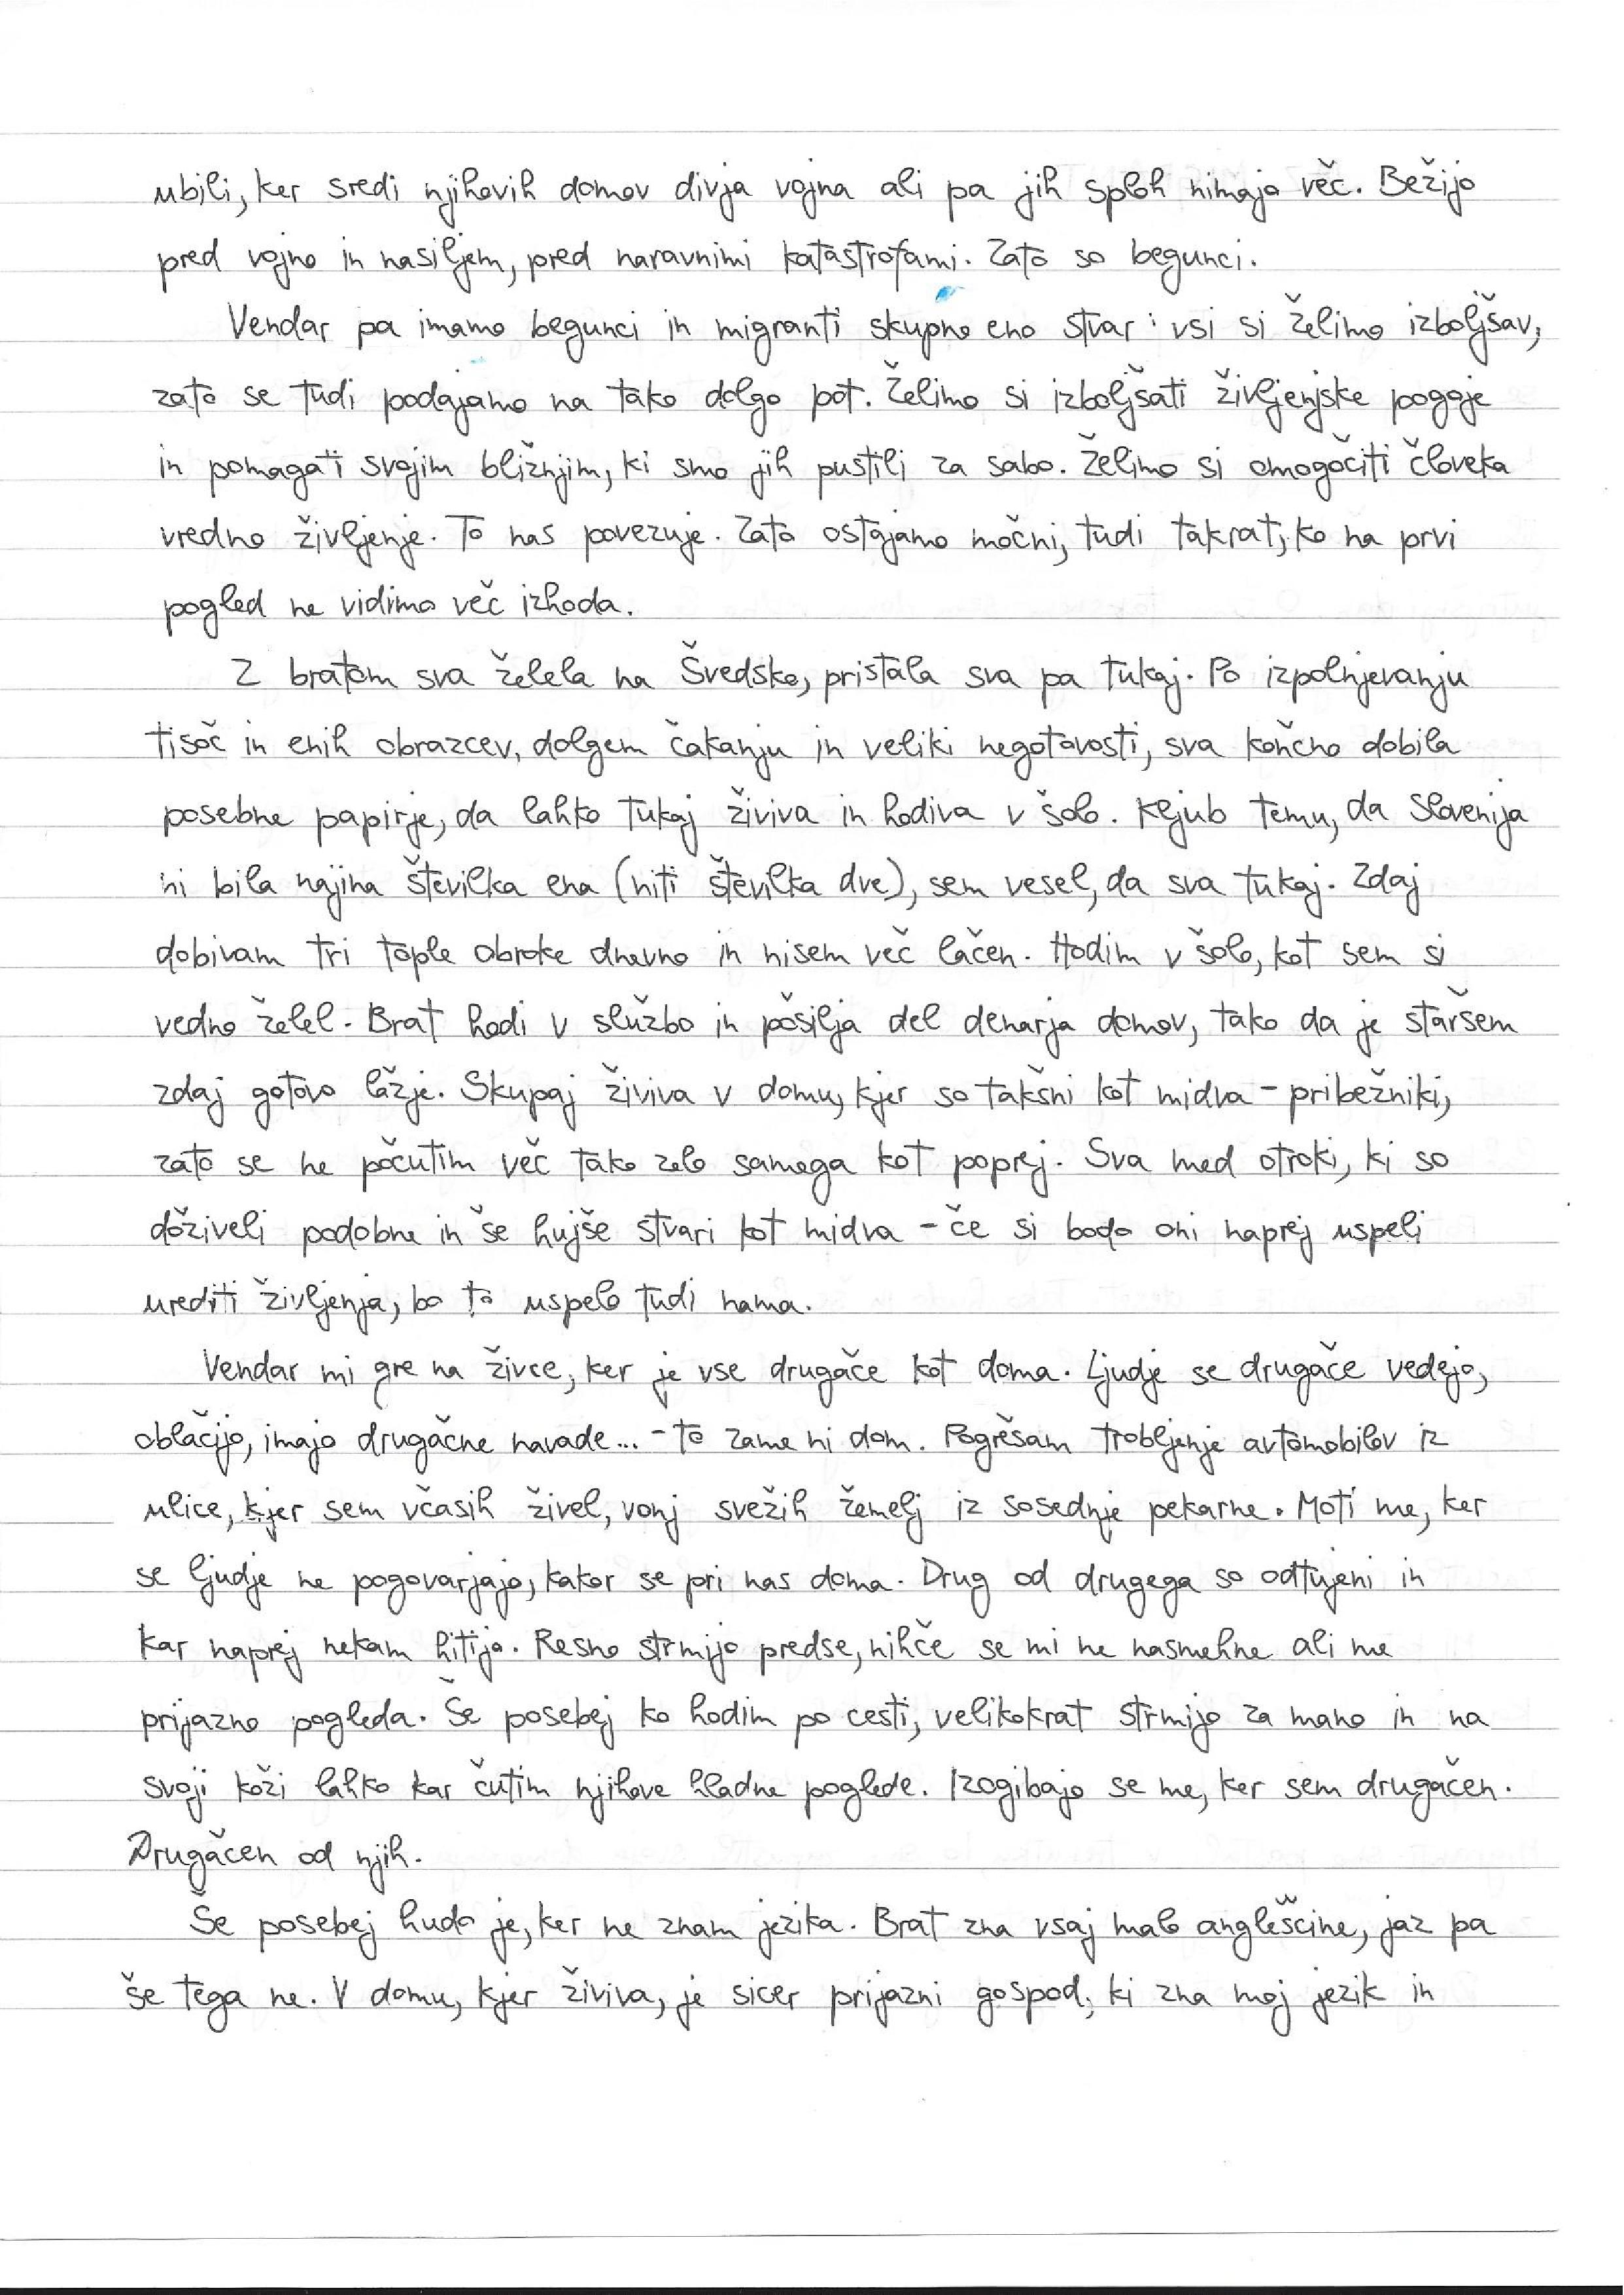 ubili, ker sredi njihovih domov divja vojna ali pa jih sploh nimajo več. Bežijo
pred vojno in nasiljem, pred naravnimi katastrofami. Zato so begunci.
Vendar pa imamo begunci in migranti skupno eno stvar: vsi si želimo izboljšav,
zato se tudi podajamo na tako dolgo pot. Želimo si izboljšati življenjske pogoje
in pomagati svojim bližnjim, ki smo jih pustili za sabo. Želimo si omogočiti človeka
vredno življenje. To nas povezuje. Zato ostajamo močni, tudi takrat, ko na prvi
pogled ne vidimo več izhoda.
Z bratom sva želela na Švedsko, pristala sva pa tukaj. Po izpolnjevanju
tisoč in enih obrazcev, dolgem čakanju in veliki negotovosti, sva končno dobila
posebne papirje, da lahko tukaj živiva in hodiva v šolo. Kljub temu, da Slovenija
ni bila najina številka ena (niti številka dve), sem vesel, da sva tukaj. Zdaj
dobivam tri tople obroke dnevno in nisem več lačen. Hodim v šolo, kot sem si
vedno želel. Brat hodi v službo in pošilja del denarja domov, tako da je staršem
zdaj gotovo lažje. Skupaj živiva v domu, kjer so takšni kot midva - pribežniki,
zato se ne počutim več tako zelo samega kot poprej. Sva med otroki, ki so
doživeli podobne in še hujše stvari kot midva - če si bodo oni naprej uspeli
urediti življenja, bo to uspelo tudi nama.
Vendar mi gre na živce, ker je vse drugače kot doma. Ljudje se drugače vedejo,
oblačijo, imajo drugačne navade... - to zame ni dom. Pogrešam trobljenje avtomobilov iz
ulice, kjer sem včasih živel, vonj svežih žemelj iz sosednje pekarne. Moti me, ker
se ljudje ne pogovarjajo, kakor se pri nas doma. Drug od drugega so odtujeni in
kar naprej nekam hitijo. Resno strmijo predse, nihče se mi ne nasmehne ali me
prijazno pogleda. Še posebej ko hodim po cesti, velikokrat strmijo za mano in na
svoji koži lahko kar čutim njihove hladne poglede. Izogibajo se me, ker sem drugačen.
Drugačen od njih.
Še posebej hudo je, ker ne znam jezika. Brat zna vsaj malo angleščine, jaz pa
še tega ne. V domu, kjer živiva, je sicer prijazni gospod, ki zna moj jezik in